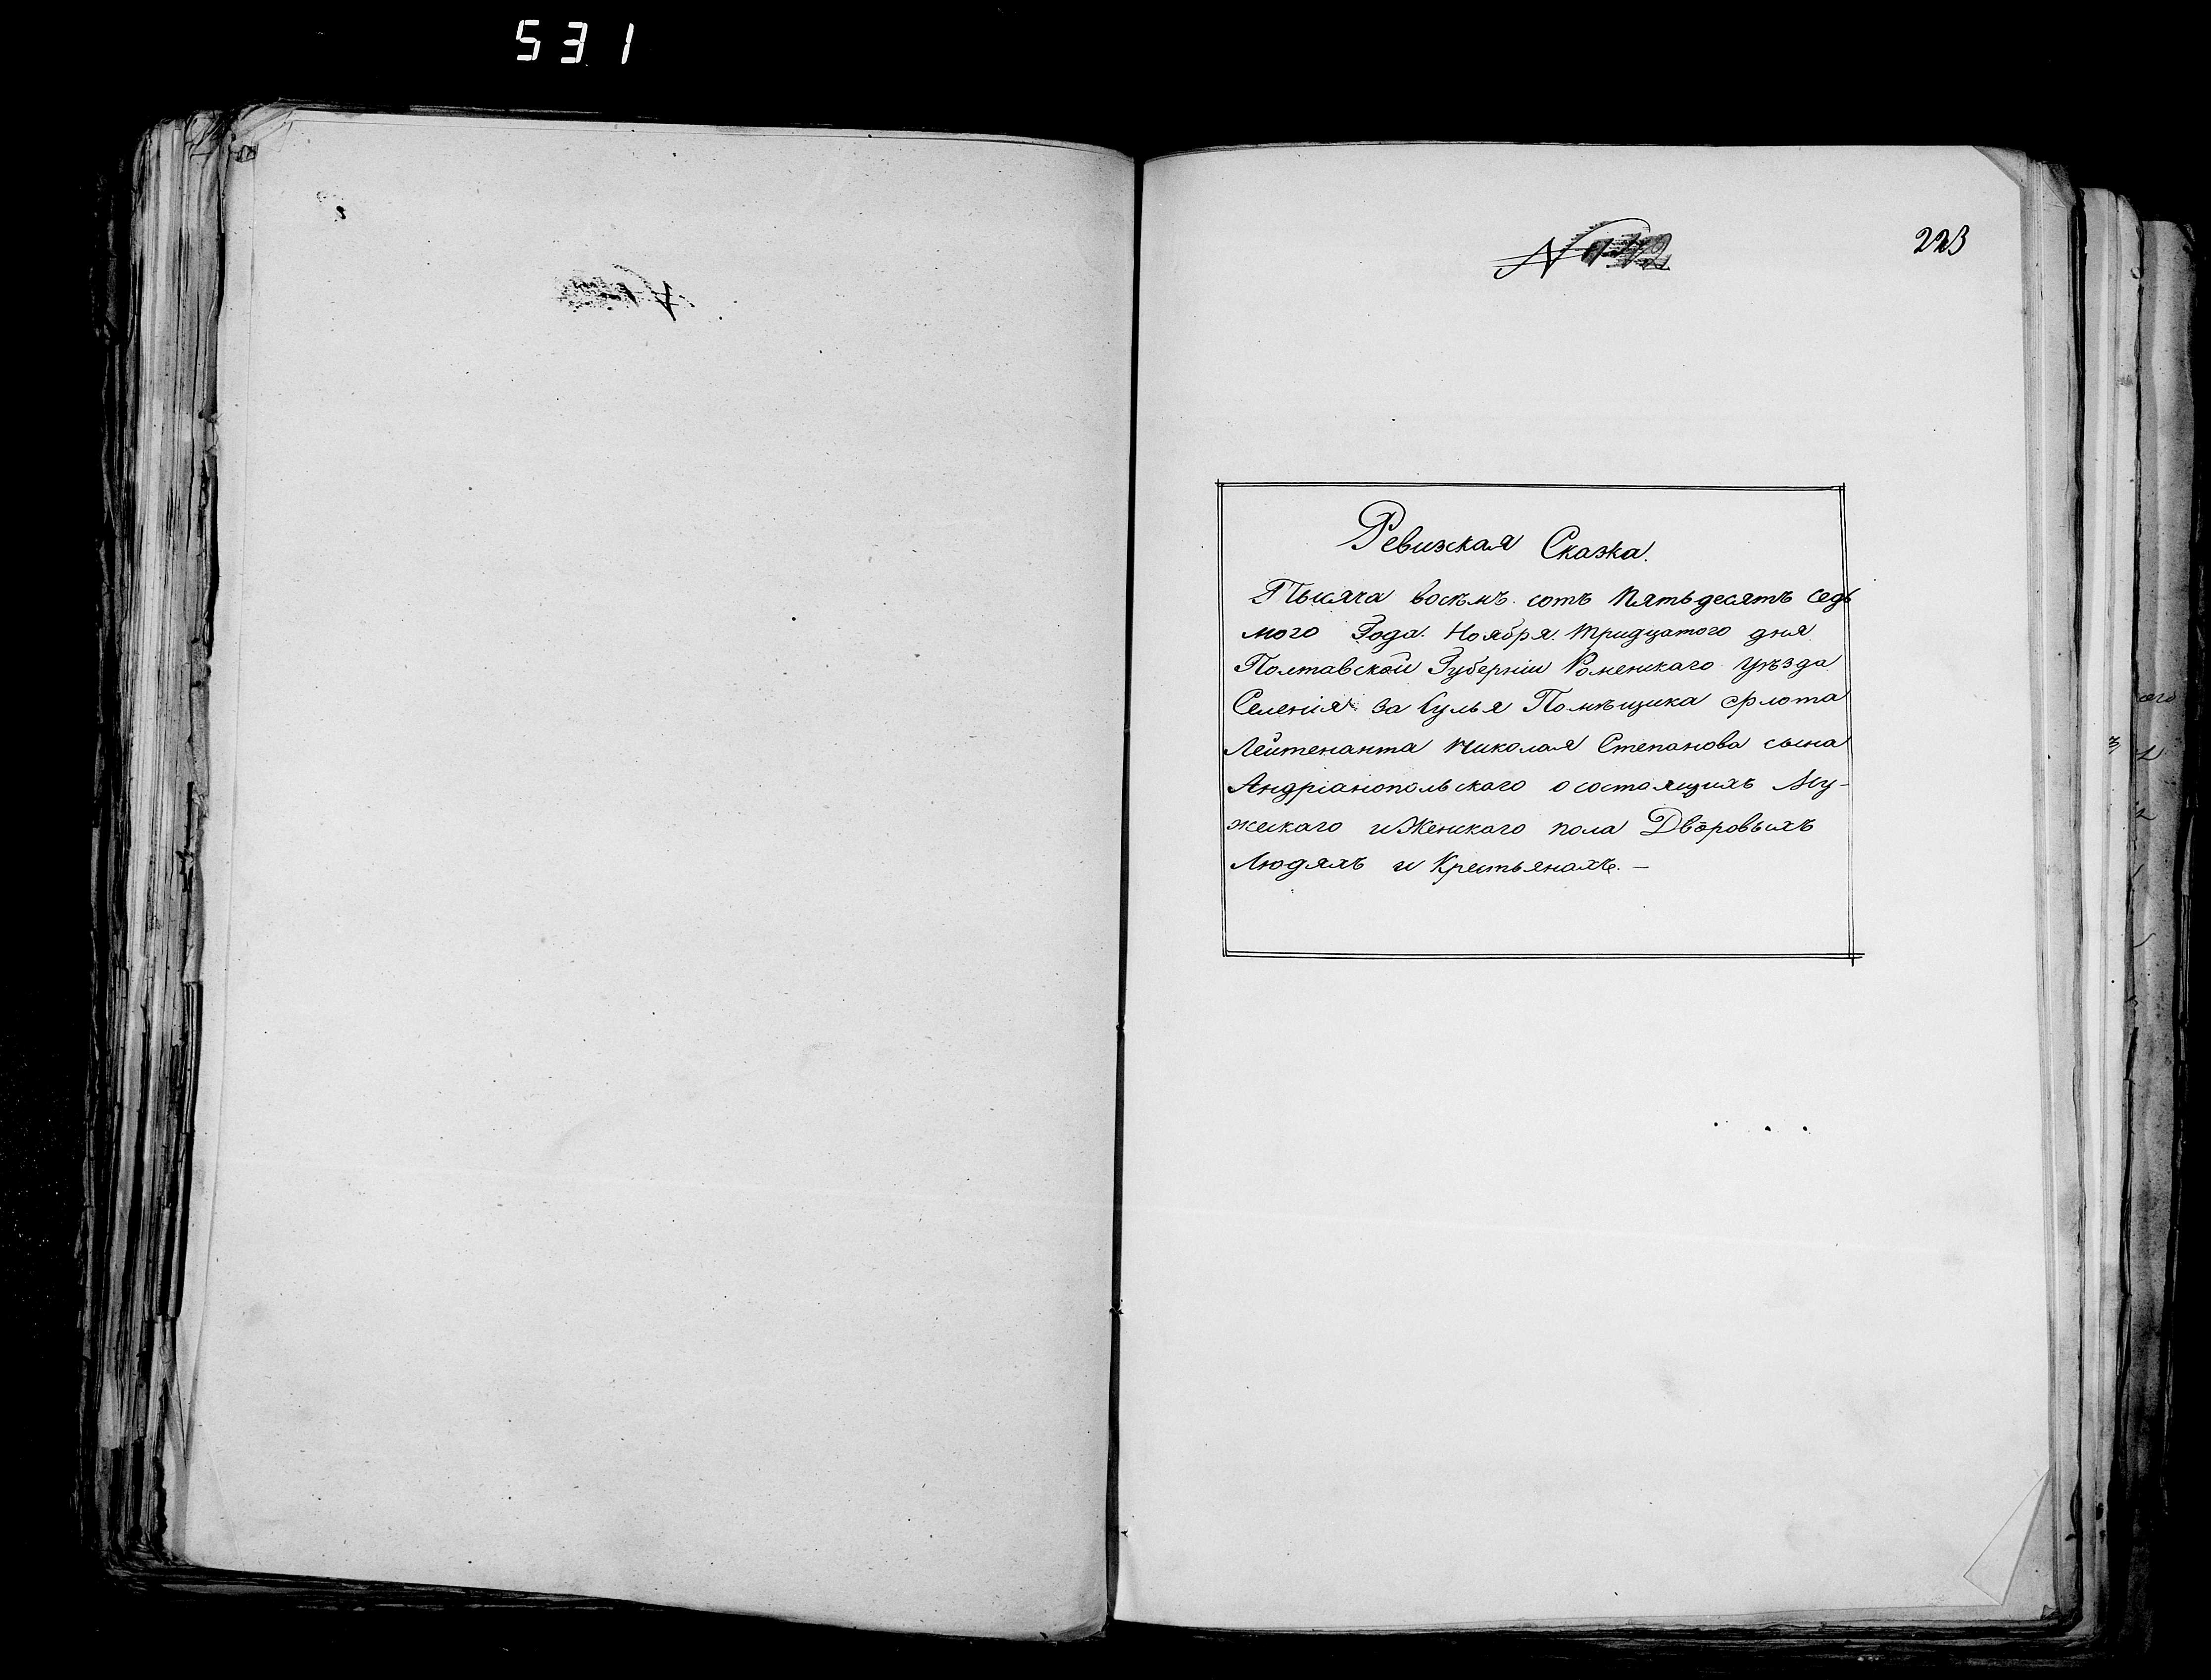 531
223
Ревизская Сказка.
Тысяча восѣмъ сотъ пятьдесятъ седь
мого Года. Ноября тридцатого дня
Полтавской Губерніи Роменскаго уѣзда
Селенія Засулья Помѣщика Флота
Лейтенанта Николая Степанова сына
Андріанопольскаго о состоящихъ Му-
жескаго и Женскаго пола Дворовыхъ
Людяхъ и Крестьянахъ. —